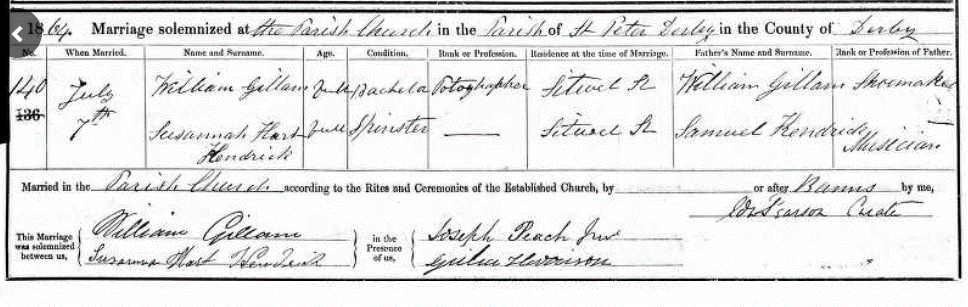 1864. Marriage solemnized at the Parish Church in the Parish of St Peter Derby in the County of Derby
No. When Married. Name and Surname. Age. Condition. Rank or Profession. Residence at the time of Marriage. Father's Name and Surname. Rank or Profession of Father.
140 July William Gillam Full Bachelor Potographer Sitwel St William Gillam Shoemaker
136 7th Susannah Hart Full Spinster — Sitwel St Samuel Kendrick Musician
Kendrick
Married in the Parish Church according to the Rites and Ceremonies of the Established Church, by or after Banns by me,
Curate
This Marriage was solemnized between us, William Gillam in the Presence of us, Joseph Peach Junr
Susanna Hart Kendrick